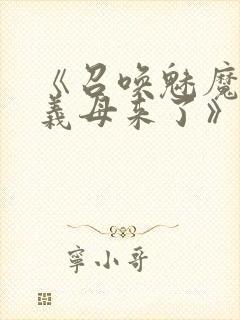 《召喚魅魔
義母来了》
寧小哥